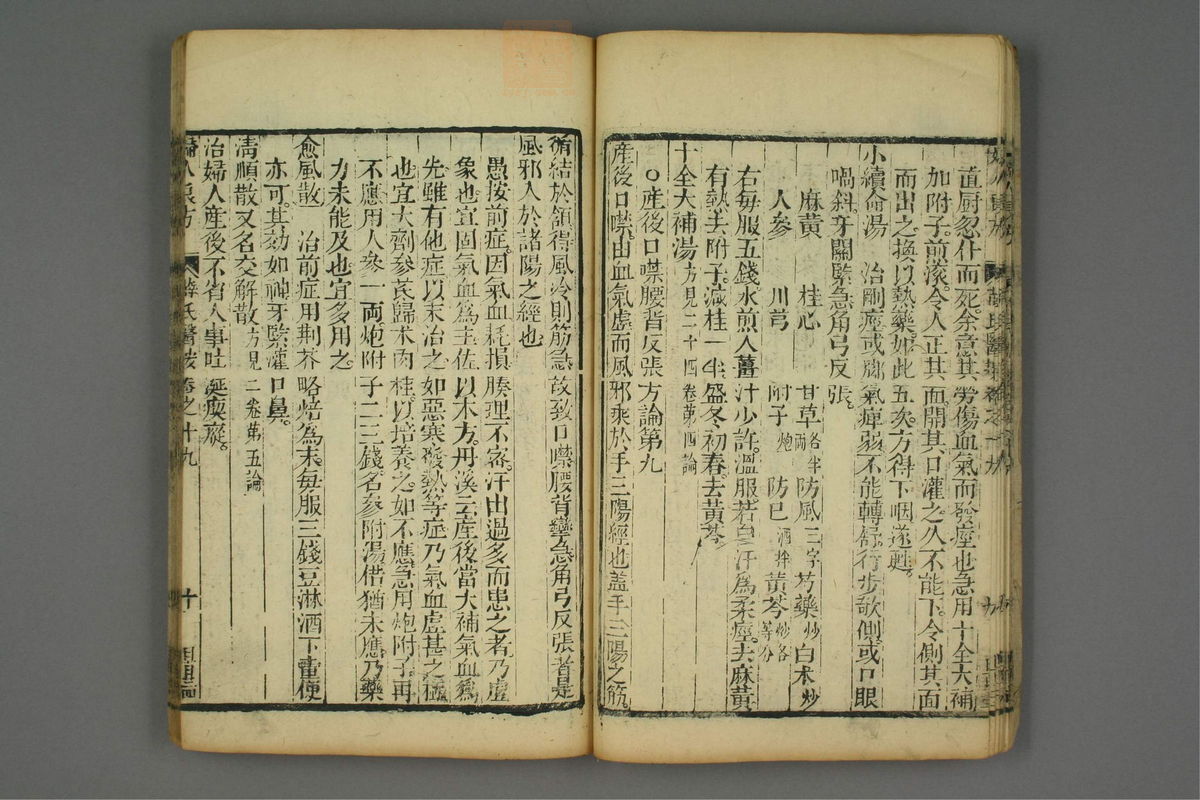 直厨忽仆而死余意其勞傷血氣而發痙也急用十全大補
加附子煎滾令人正其面開其口灌之久不能下令側其面
而出之換以熱藥如此五次方得下咽遂甦
小續命湯 治剛痙或脚氣痺弱不能轉舒行步欹側或口眼
喎斜牙關緊急角弓反張
麻黃 桂心 甘草各半兩 防風三字 芍藥炒 白术炒
人參 川芎 附子炮 防巳酒拌 黃芩炒各等分
右每服五錢水煎入薑汁少許溫服若自汗爲柔痙去麻黃
有熱去附子減桂一半盛冬初春去黃芩
十全大補湯方見二十四卷第四論
○產後口噤腰背反張方論第九
產後口噤由血氣虛而風邪乘於手三陽經也蓋手三陽之筋
循結於頷得風冷則筋急故致口噤腰背攣急角弓反張者是
風邪入於諸陽之經也
愚按前症因氣血耗損腠理不密汗出過多而患之者乃虛
象也宜固氣血爲主佐以本方丹溪云產後當大補氣血爲
先雖有他症以末治之如惡寒發熱等症乃氣血虛甚之極
也宜大劑參芪歸术肉桂以培養之如不應急用炮附子再
不應用人參一兩炮附子二三錢名參附湯倍猶未應乃藥
力未能及也宜多用之
愈風散 治前症用荆芥略焙爲末每服三錢豆淋酒下童便
亦可其効如神牙緊灌口鼻
清順散又名交解散方見二卷第五論
治婦人產後不省人事吐涎瘈瘲
婦人良方 薛氏醫按卷之十九 十